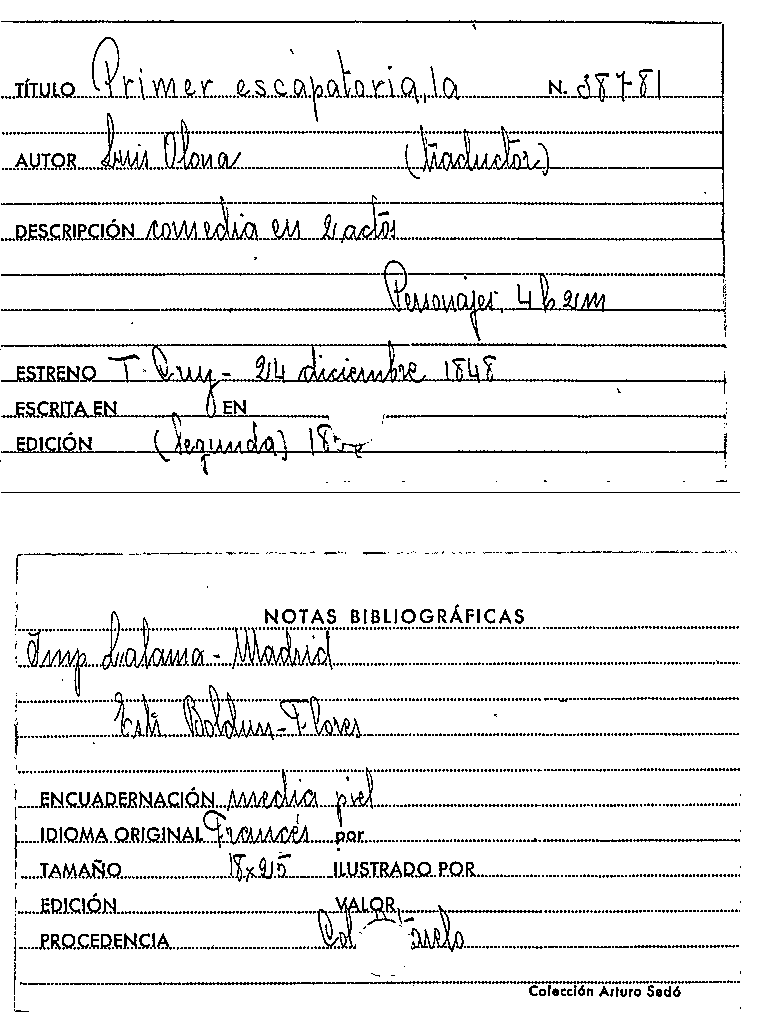 TÍTULO Primer escapatoria, la N. 38781
AUTOR Luis Olona (traductor)
DESCRIPCIÓN comedia en 2 actos
Personajes, 4 h 2 m
ESTRENO T. Cruz - 24 diciembre 1848
ESCRITA EN EN
EDICIÓN (Segunda)
NOTAS BIBLIOGRÁFICAS
Imp Lalama - Madrid
Boldun - Flores
ENCUADERNACIÓN media piel
IDIOMA ORIGINAL Francés por
TAMAÑO 18x25 ILUSTRADO POR
EDICIÓN VALOR
PROCEDENCIA Col
Colección Arturo Sedó